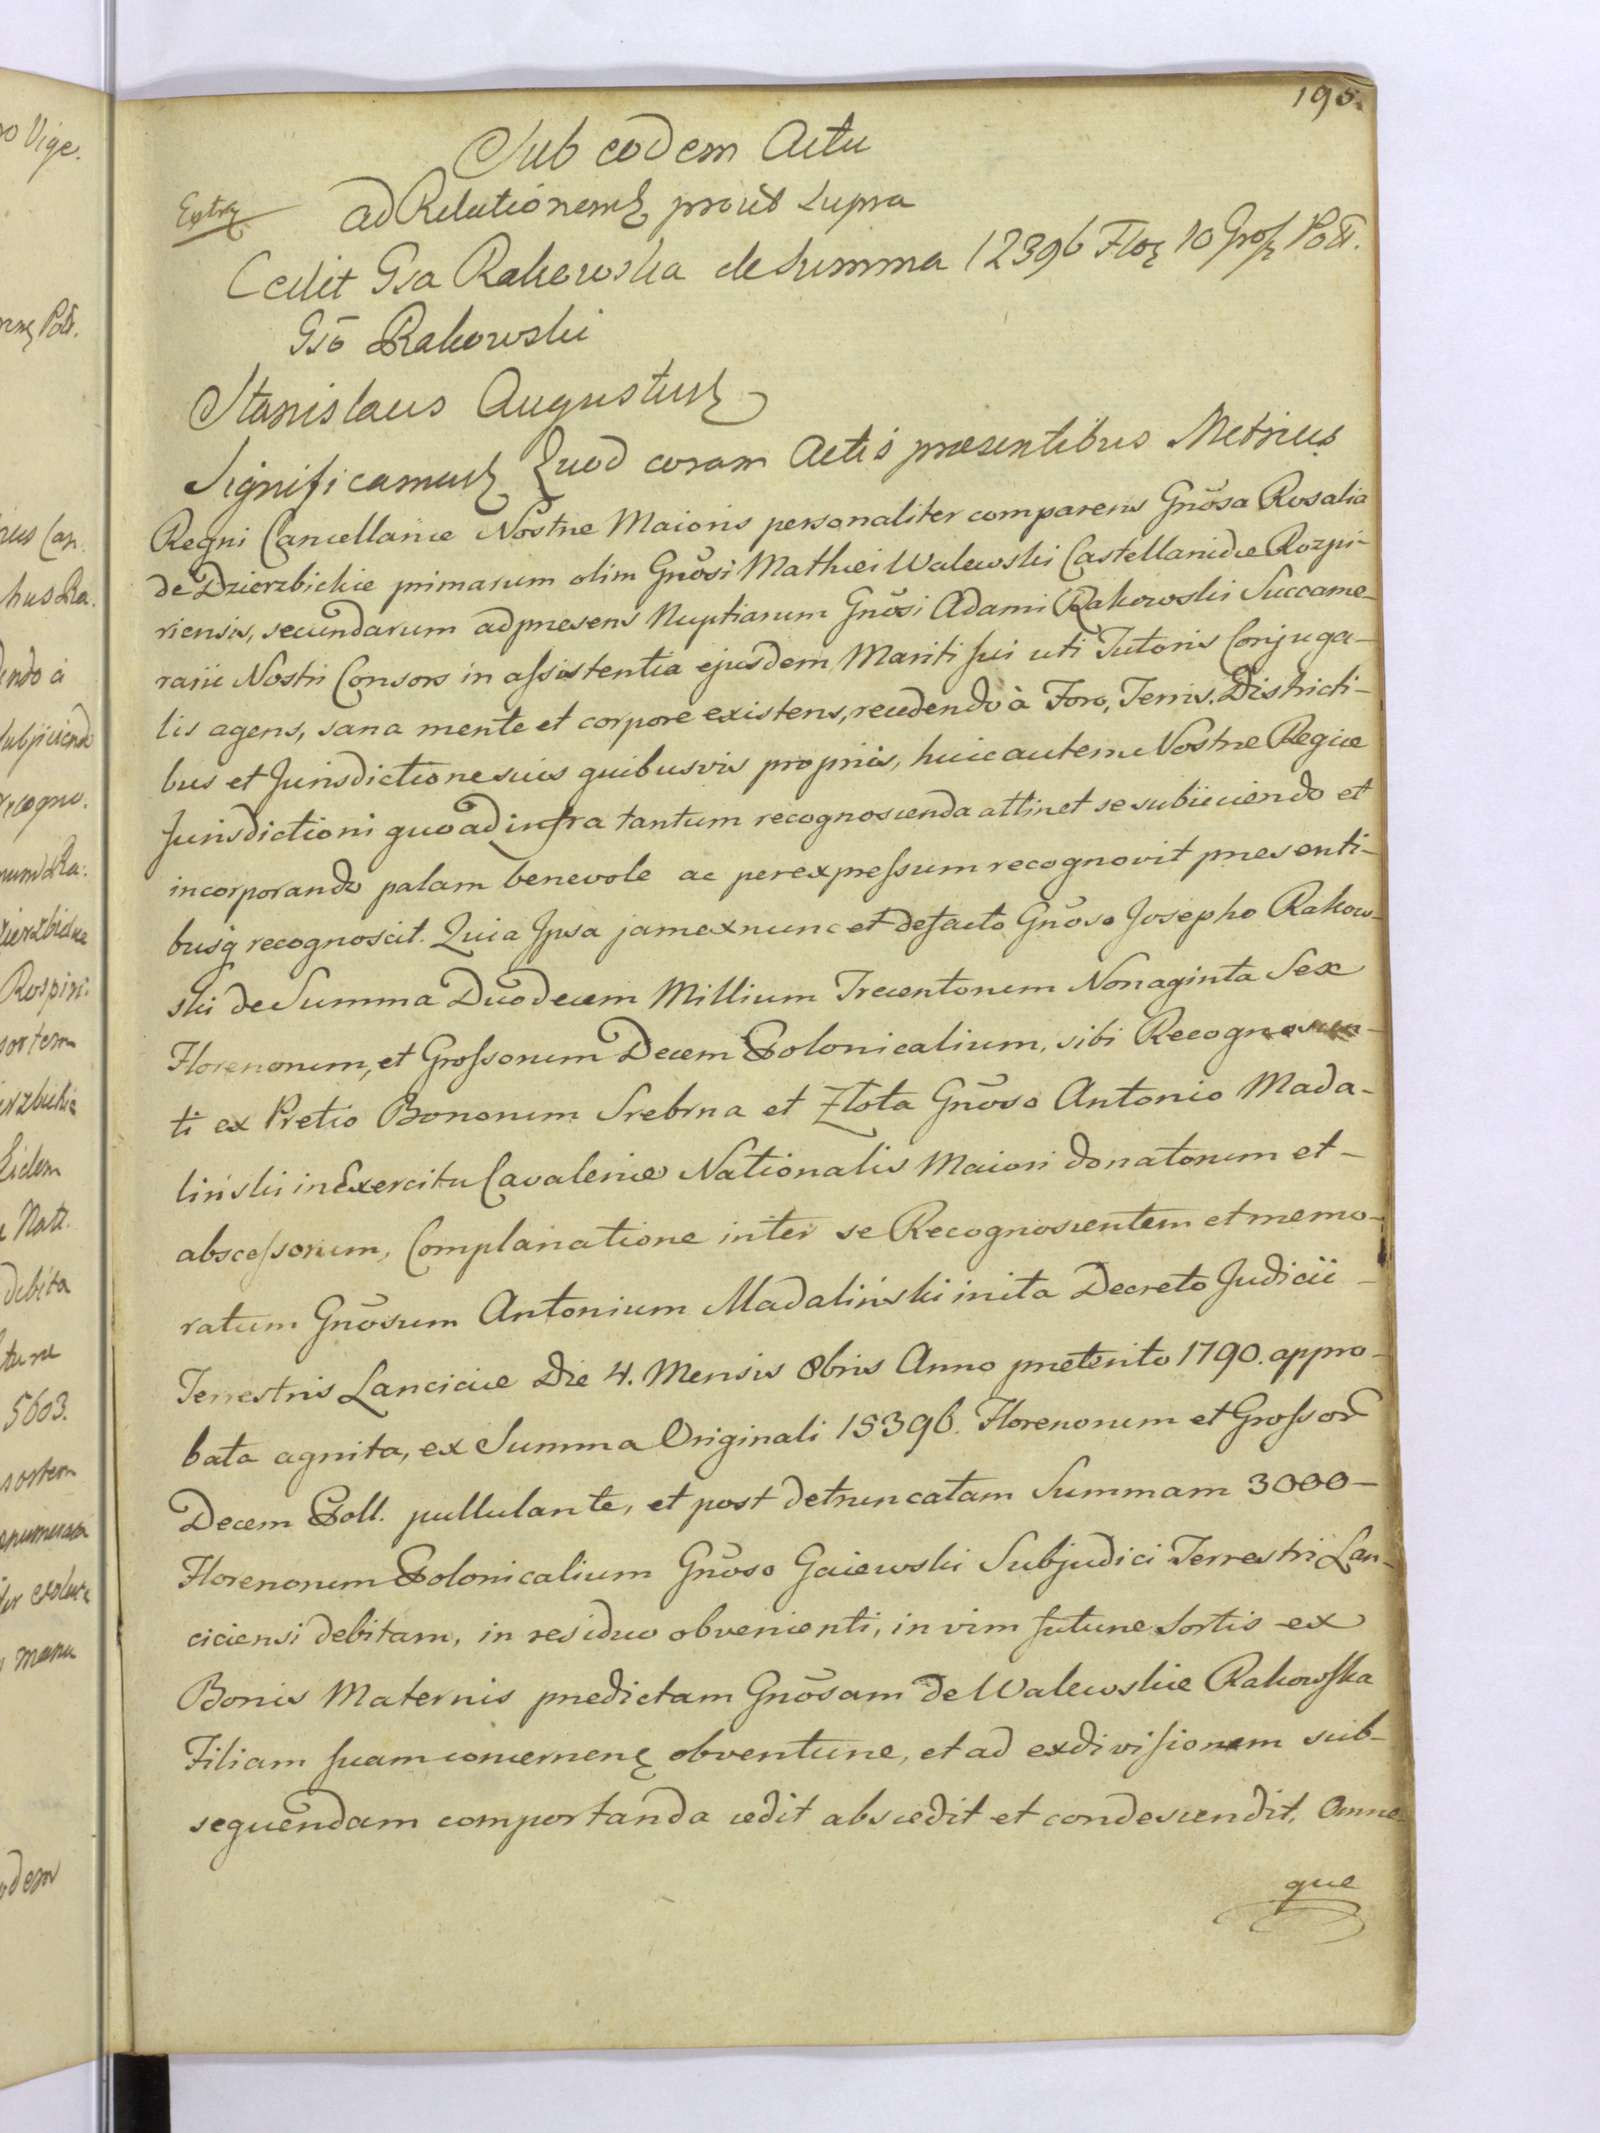 195.
Sub eodem Actu
Extr.
ad Relationem prout Supra
Cedit Gsa Rakowska de Summa 12396 Flor 10 Gross Poll.
Gso Rakowski
Stanislaus Augustus
Significamus Quod coram Actis praesentibus Metrices
Regni Cancellariæ Nostræ Maioris personaliter comparens Gnõsa Rosalia
de Dzierzbickie primarum olim Gnõsi Mathæi Walewski Castellanidæ Rozpi-
riensis, secundarum ad præsens Nuptiarum Gnõsi Adami Rakowski Succame-
rarii Nostri Consors in assistentia ejusdem Mariti sui uti Tutoris Conjuga-
lis agens, sana mente et corpore existens, recedendo à Foro, Terris, Districti-
bus et Jurisdictionesuis quibusvis propriis, huic autem Nostræ Regiæ
Jurisdictioni quo ad infra tantum recognoscenda attinet se subiiciendo et
incorporando palam benevole ac per expressum recognovit præsenti-
busq recognoscit. Quia Ipsa jam ex nunc et de facto Gnõso Josepho Rakow-
ski de Summa Duodecem Millium Trecentorum Nonaginta Sex
Florenorum, et Grossorum Decem Polonicalium, sibi Recognoscen-
ti ex Pretio Bonorum Srebrna et Złota Gnõso Antonio Mada-
liński in Exercitu Cavaleriæ Nationalis Maiori donatorum et -
abscessorum, Complanatione inter se Recognoscentem et memo-
ratum Gnõsum Antonium Madaliński inita Decreto Judicii -
Terrestris Lanciciæ Die 4. Mensis 8bris Anno præterito 1790. appro-
bata agnita, ex Summa Originali 15396. Florenorum et Grossor
Decem Poll. pullulante, et post detruncatam Summam 3000 -
Florenorum Polonicalium Gnõso Gaiewski Subjudici Terrestri Lan-
ciciensi debitam, in residuo obvenienti, in vim futuræ Sortis ex
Bonis Maternis prædictam Gnõsam de Walewskie Rakowska
Filiam suam concernen obventuræ, et ad exdivisionem sub-
sequendam comportanda cedit abscedit et condescendit, Omne-
que